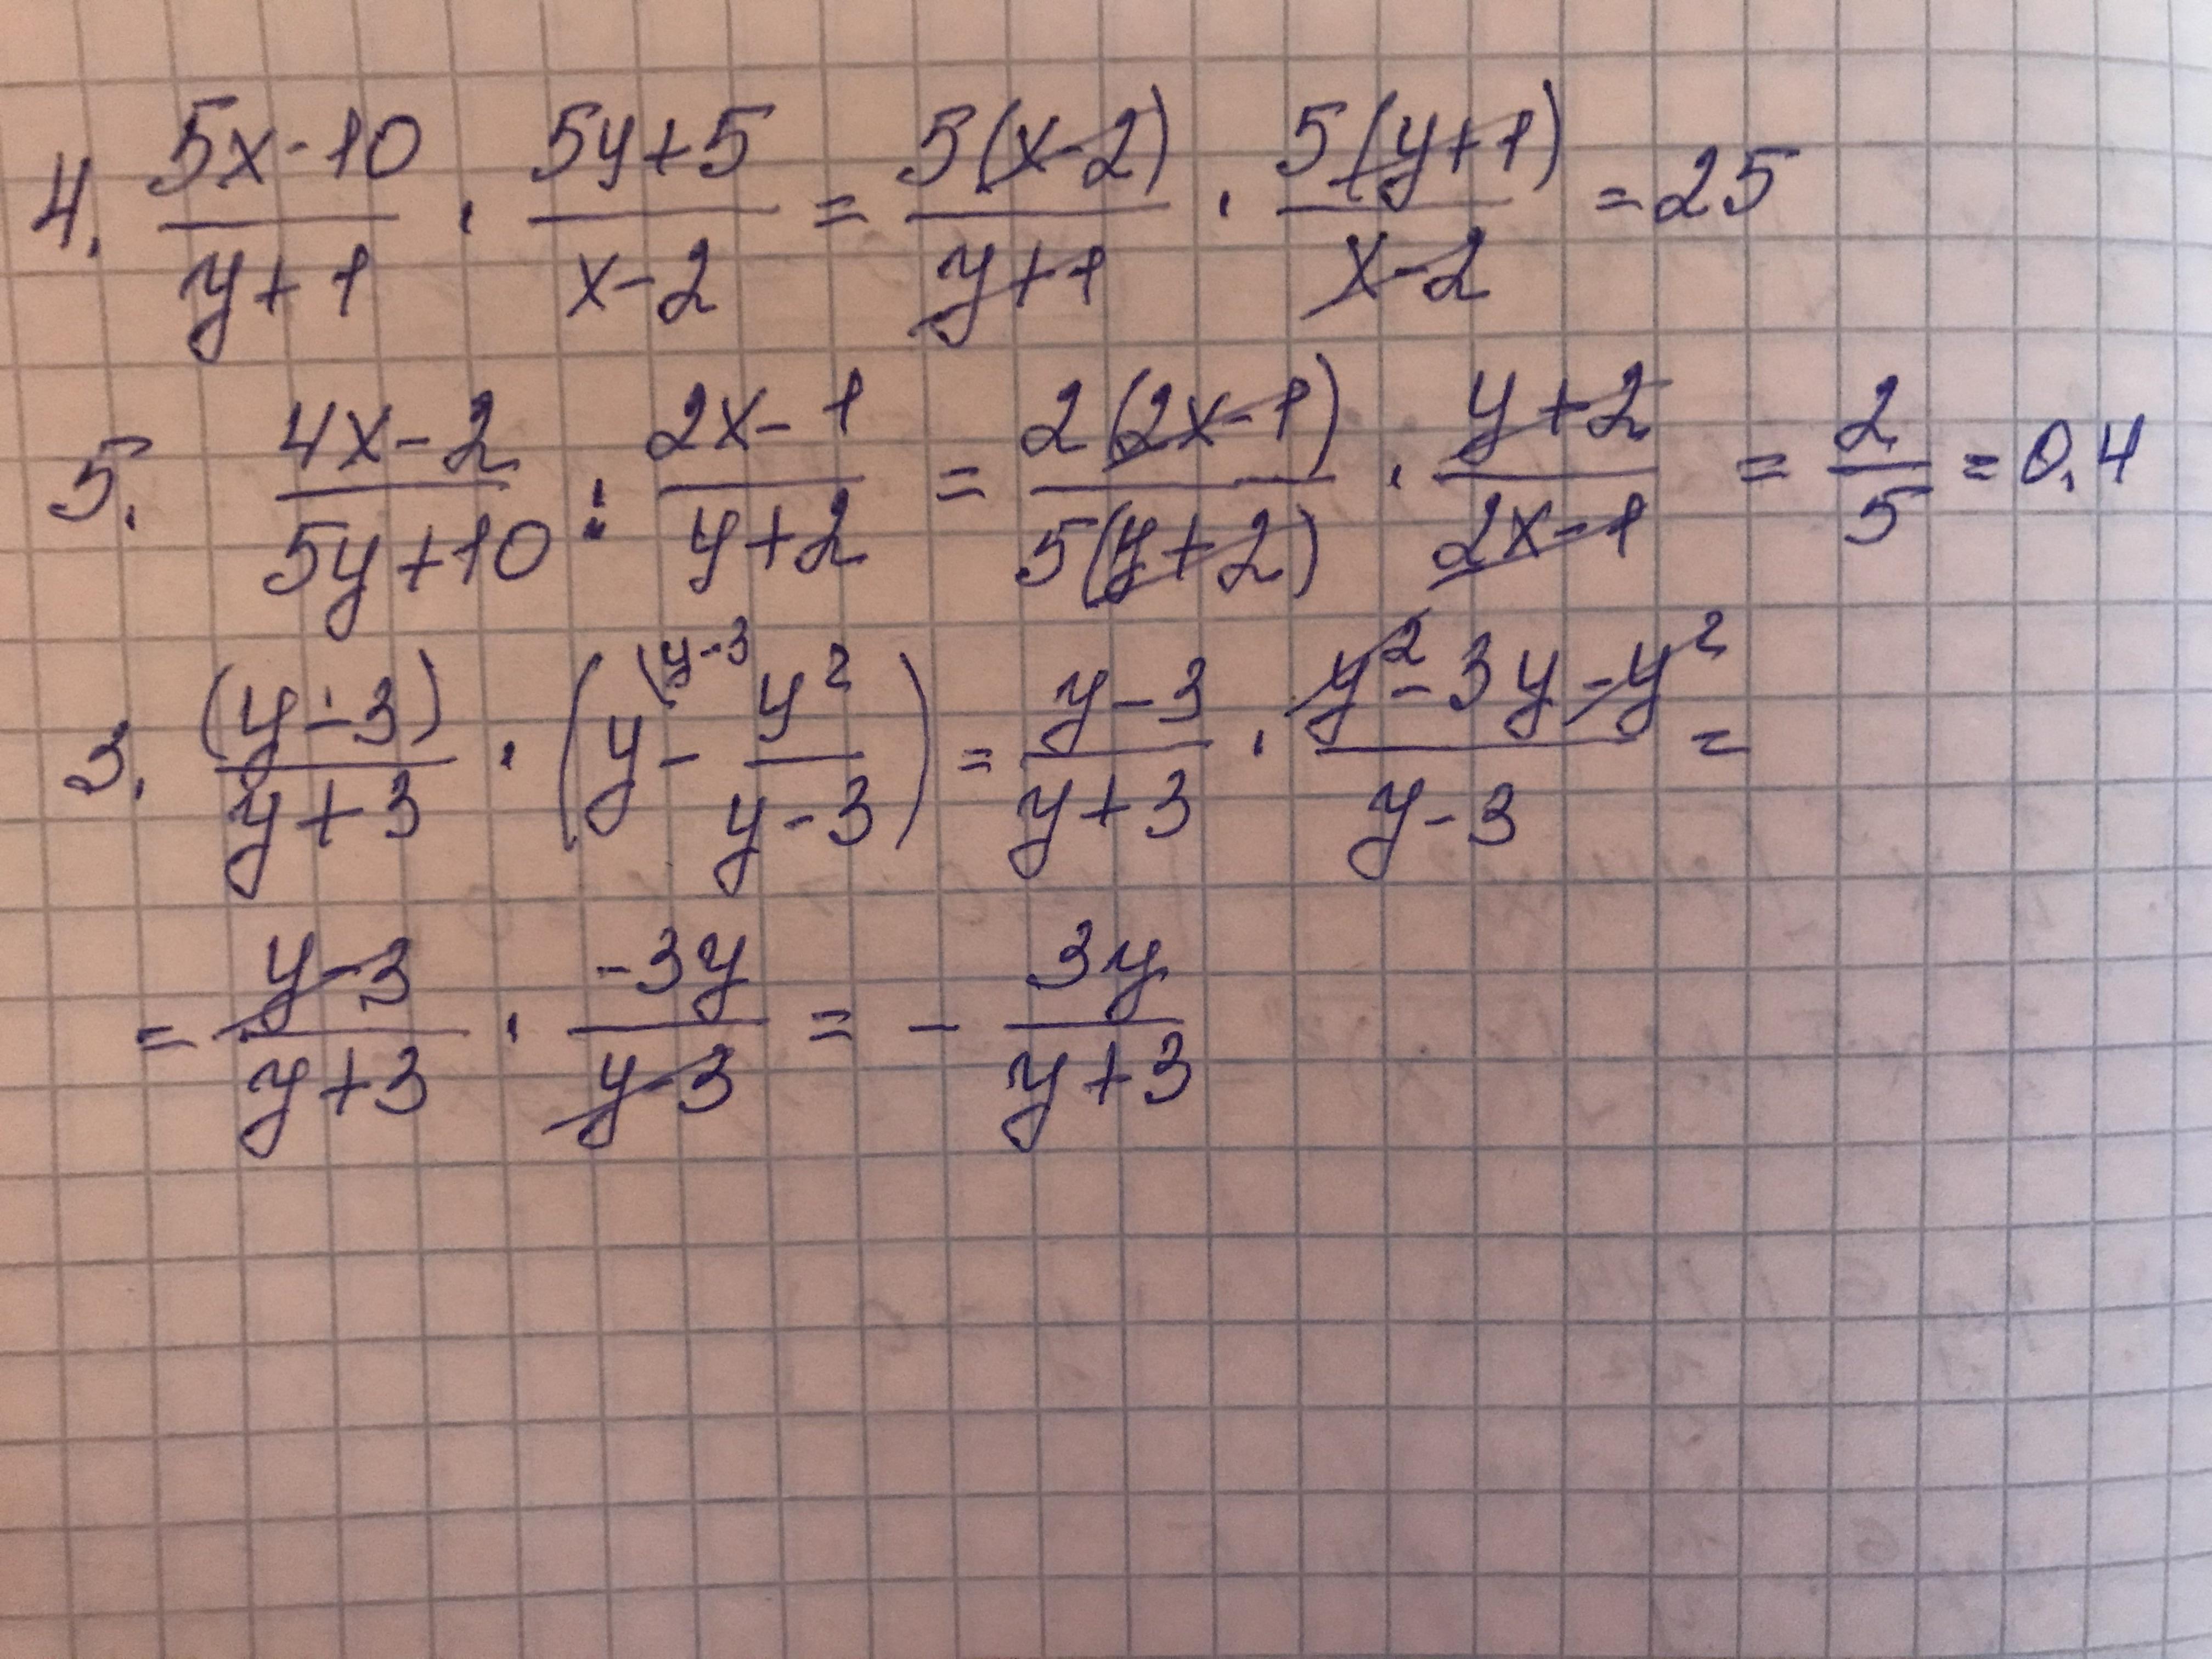 4. (5x-10)/(y+1) · (5y+5)/(x-2) = 5(x-2)/(y+1) · 5(y+1)/(x-2) = 25
5. (4x-2)/(5y+10) : (2x-1)/(y+2) = 2(2x-1)/5(y+2) · (y+2)/(2x-1) = 2/5 = 0,4
3. (y-3)/(y+3) · (y\y-3 - y²/(y-3)) = (y-3)/(y+3) · (y²-3y-y²)/(y-3) =
= (y-3)/(y+3) · (-3y)/(y-3) = - 3y/(y+3)